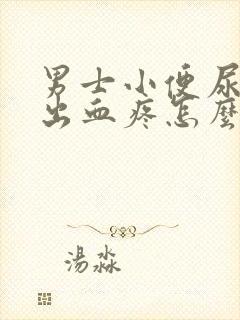 男士小便尿
出血疼怎麼
湯淼